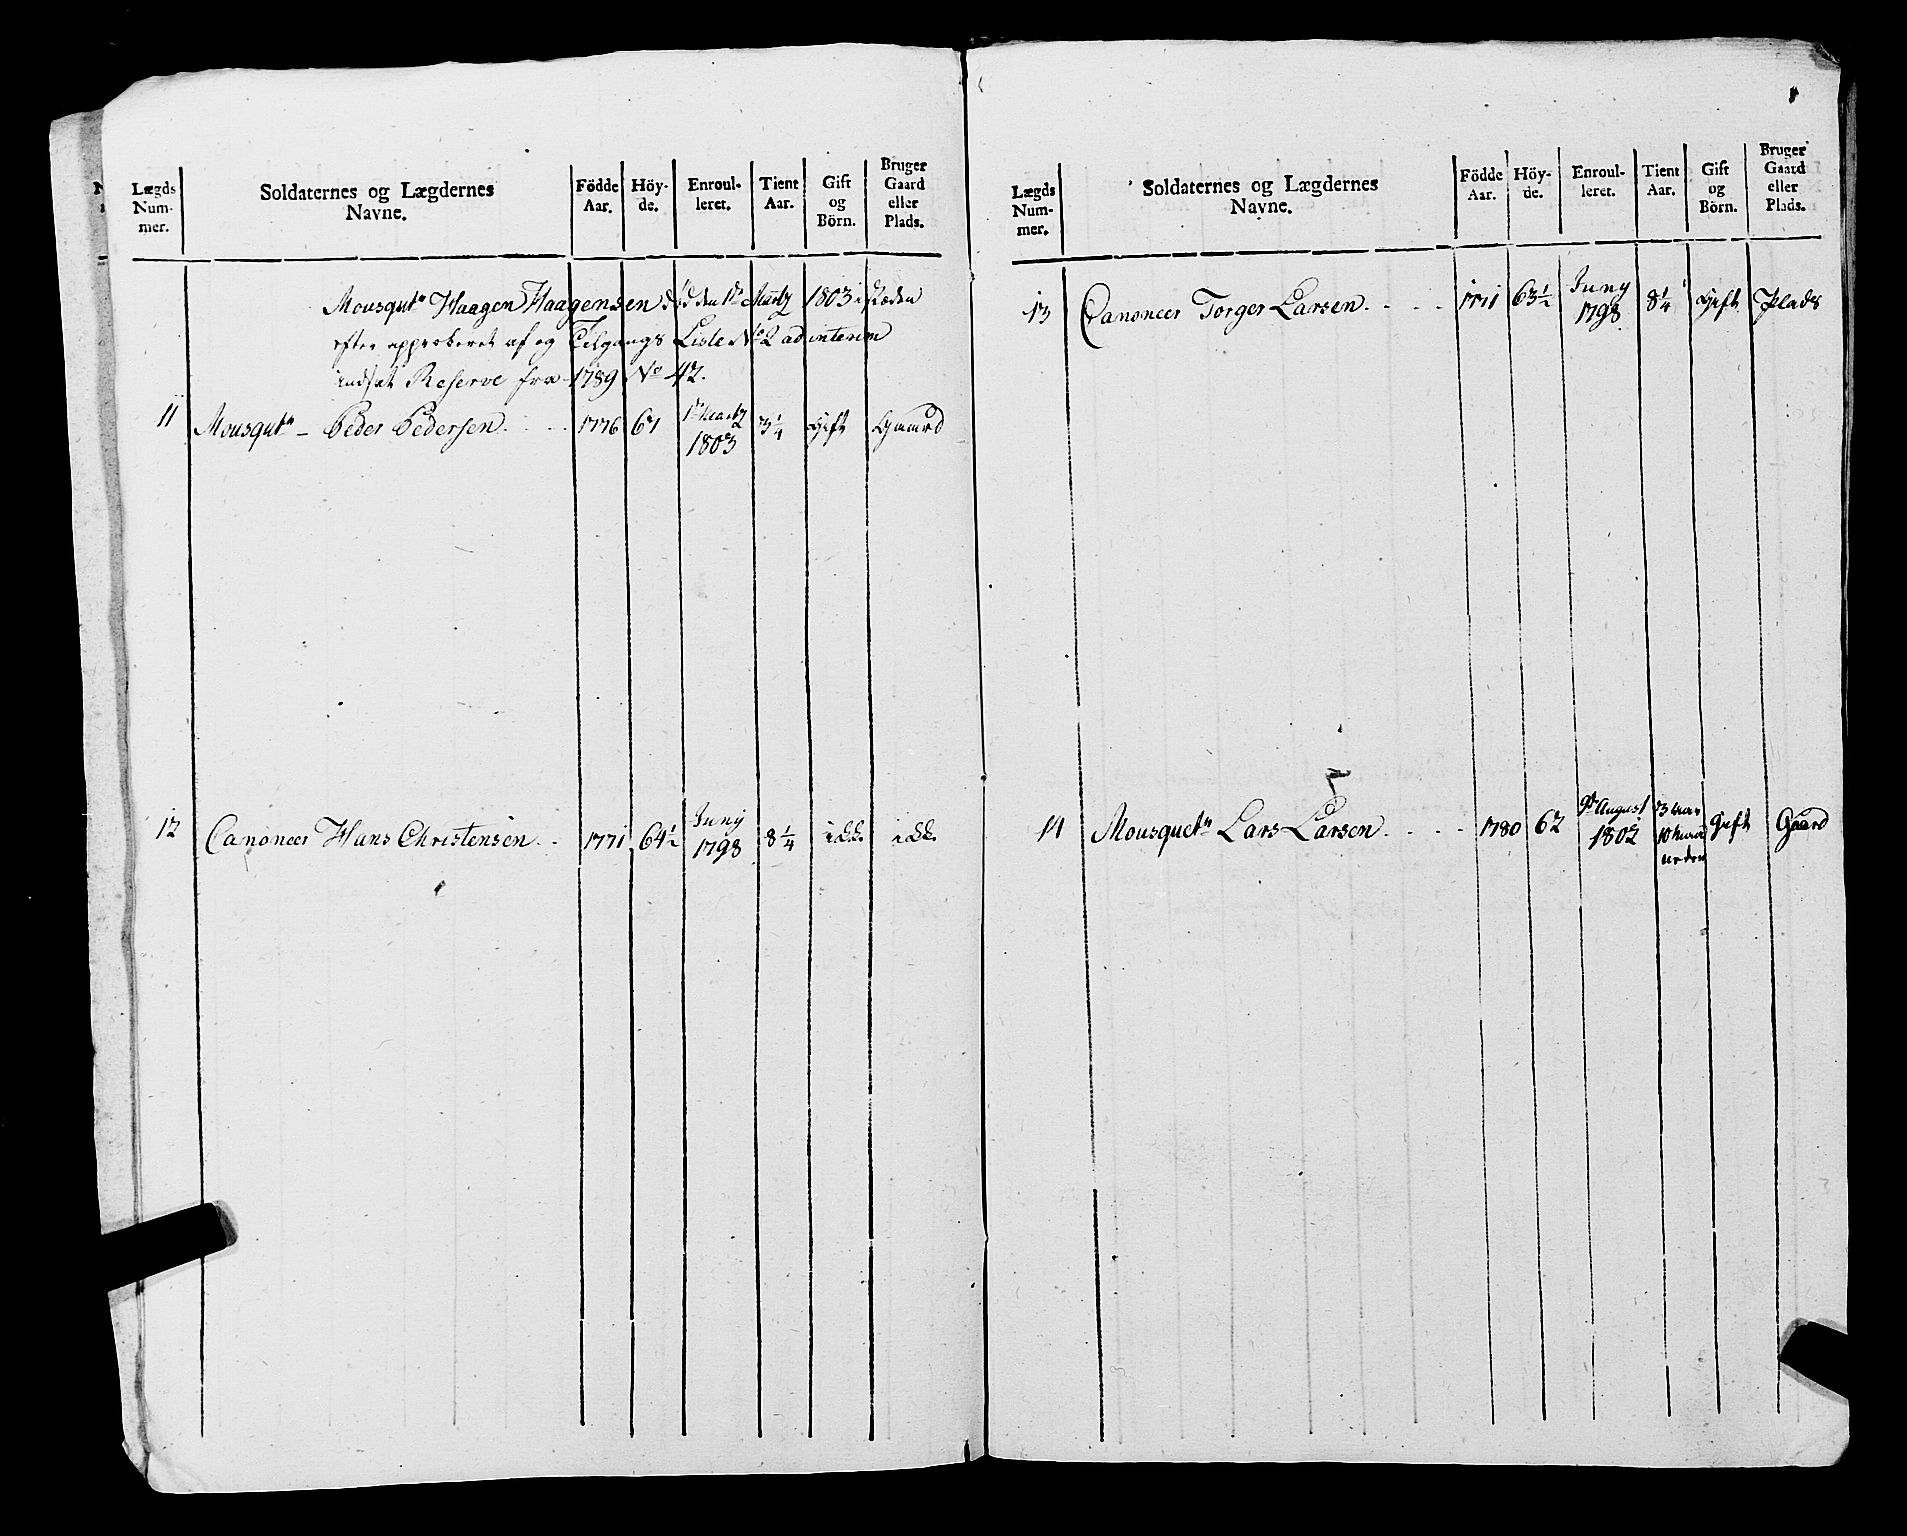 Lægds Num- mer.
Soldaternes og Lægdernes Navne.
Födde Aar.
Höy- de.
Enroul- leret.
Tient Aar.
Gift og Börn.
Bruger Gaard eller Plads.
Mousqutr Haagen Haagensen død den 1ste Martz 1803 i steden
efter approberet af og Tilgangs Liste No 2 ad interim
indsat Reserve fra 1789 No 42.
11 Mousqutr – Peder Pedersen. 1776 67 1ste Martz 1803 3 1/4 Gift Gaard
12 Canoneer Hans Christensen. 1771 64 1/2 Juny 1798 8 1/4 ikke ikke
Lægds Num- mer.
Soldaternes og Lægdernes Navne.
Födde Aar.
Höy- de.
Enroul- leret.
Tient Aar.
Gift og Börn.
Bruger Gaard eller Plads.
13 Canoneer Torger Larsen. 1771 63 1/2 Juny 1798 8 1/4 Gift Plads
14 Mousquetr Lars Larsen. 1780 62 9de August 1802 3 aar 10 Maaneder Gift Gaard